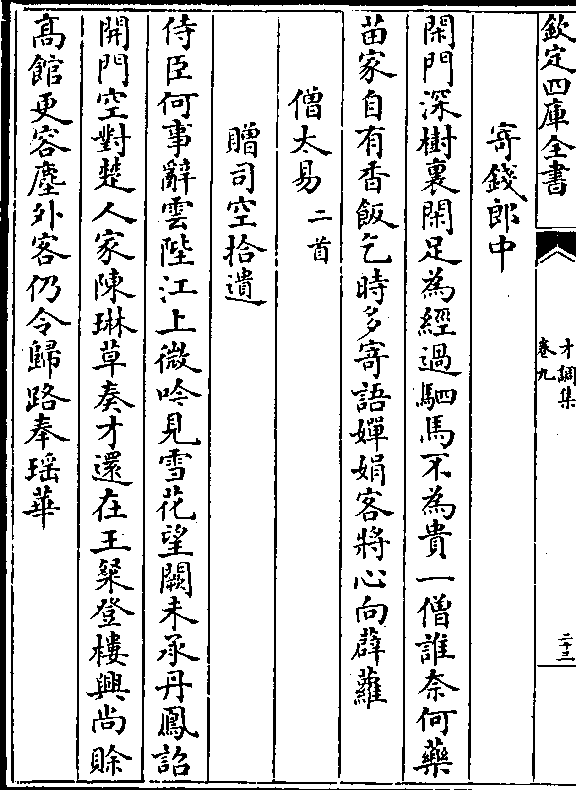 欽定四庫全書
才調集
卷九
二十三
寄錢郎中
閉門深樹裏閑足為經過駟馬不為貴一僧誰奈何藥
苗家自有香飯乞時多寄語嬋娟客將心向薜蘿
僧太易二首
贈司空拾遺
侍臣何事辭雲陛江上微吟見雪花望闕未承丹鳳詔
開門空對楚人家陳琳草奏才還在王粲登樓興尚賖
髙館更容塵外客仍令歸路奉瑶華